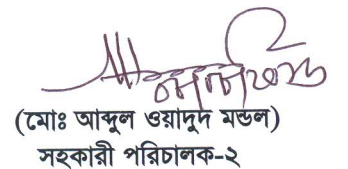 (মোঃ আব্দুল ওয়াদুদ মন্ডল)
সহকারী পরিচালক-২